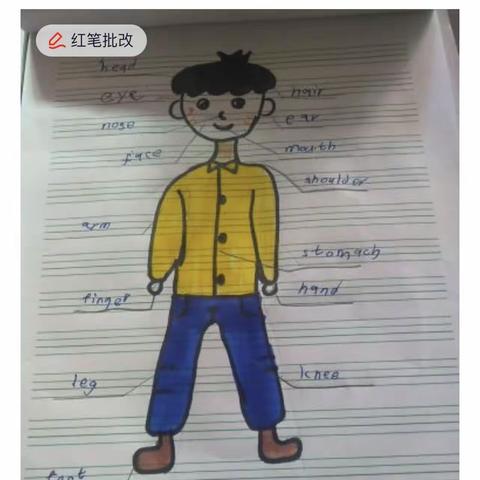 红笔批改
head
eye
hair
nose
ear
face
mouth
shoulder
arm
stomach
finger
hand
leg
knee
foot